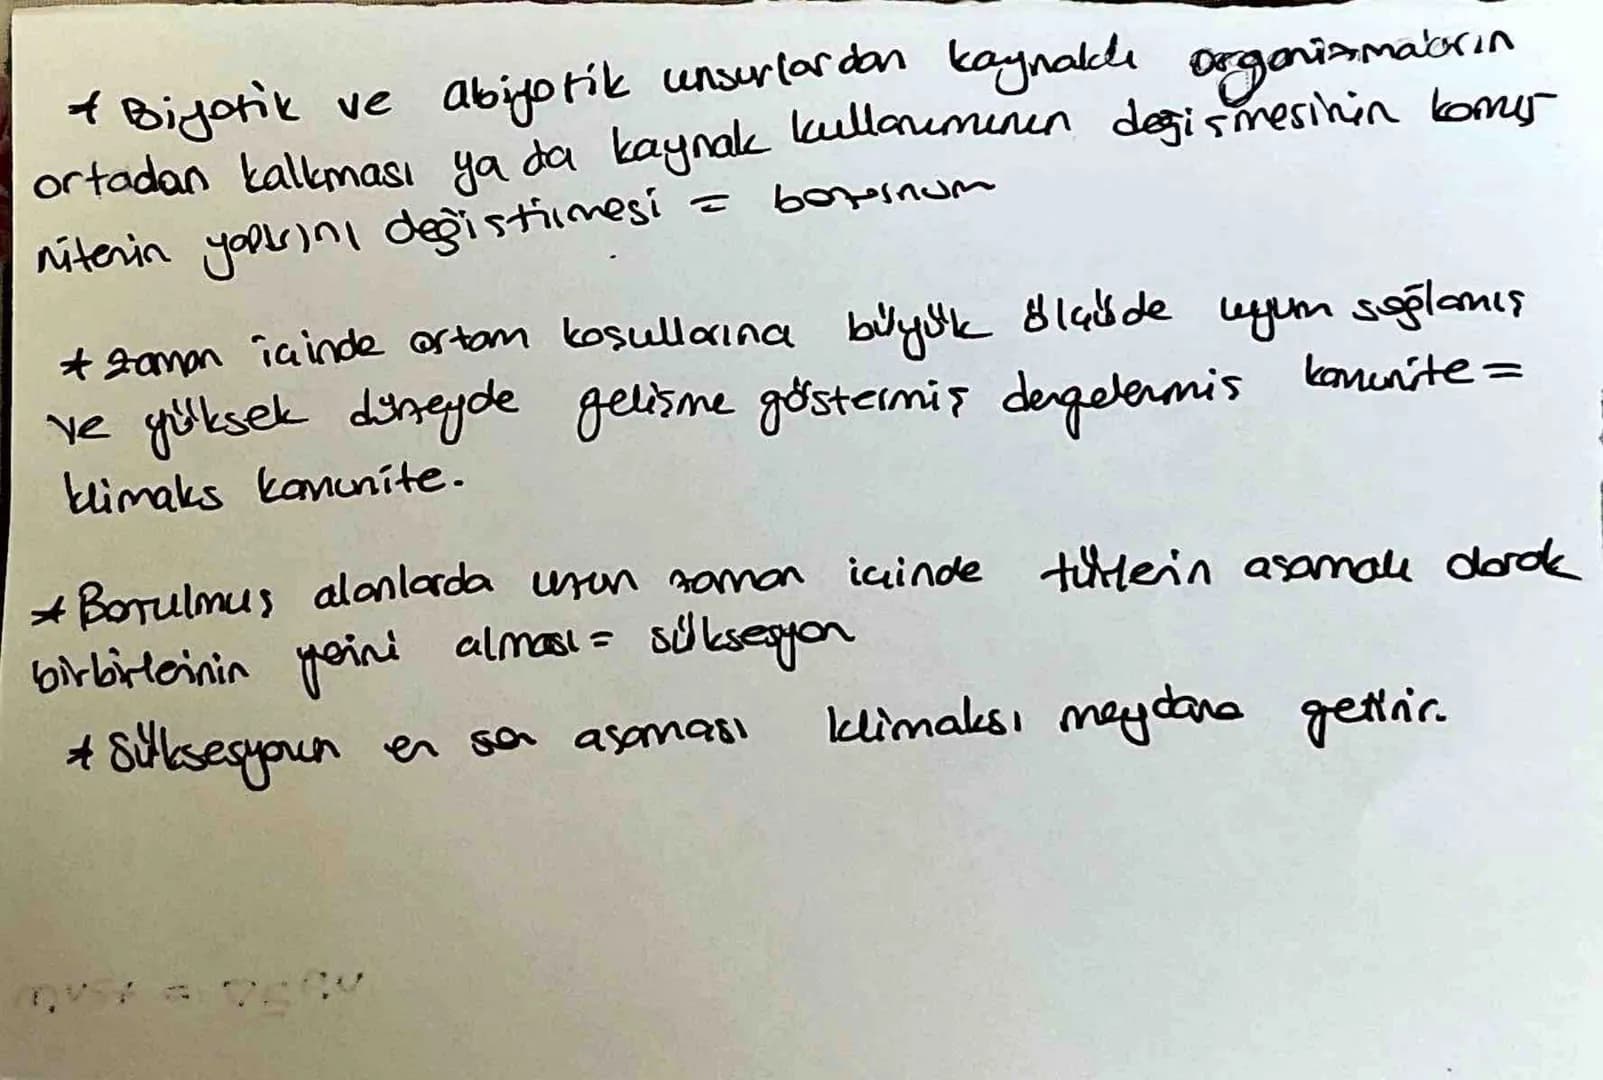 * Biyotik ve abiyotik unsurlardan kaynaklı organizmaların
ortadan kalkması ya da kaynak kullanımının değişmesinin komü-
nitenin yapısını değiştirmesi = bozunum
* zaman içinde ortam koşullarına büyük ölçüde uyum sağlamış
ve yüksek düzeyde gelişme göstermiş dengelenmiş komünite =
klimaks komünite.
* Bozulmuş alanlarda uzun zaman içinde türlerin aşamalı olarak
birbirlerinin yerini alması = süksesyon
* Süksesyonun en son aşaması klimaksı meydana getirir.